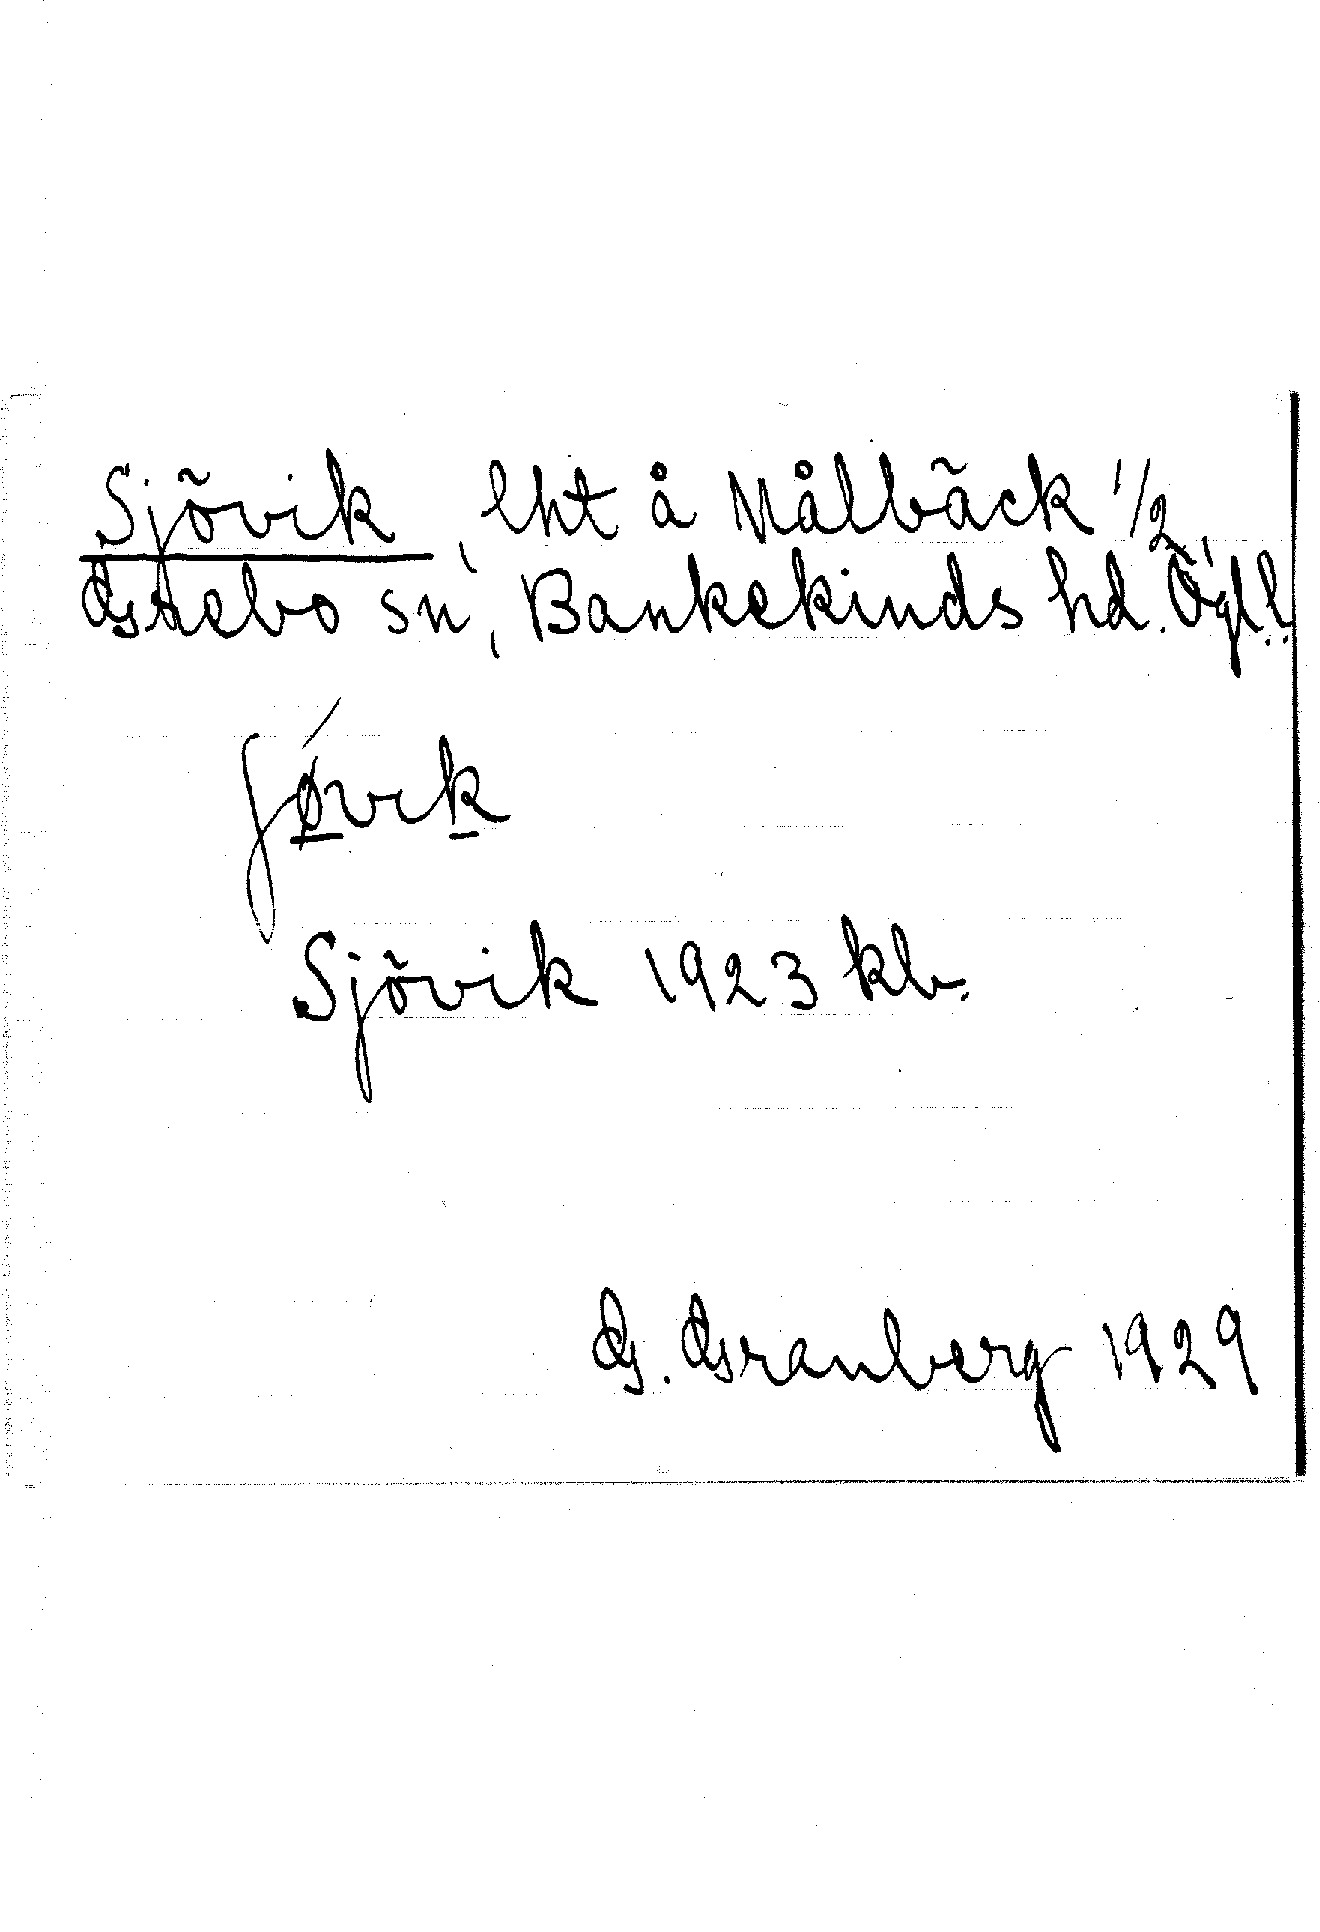 Sjövik, lht å Målbäck 1/2,
Grebo sn, Bankekinds hd. Ögtl.
ʃǿvɩk
Sjövik 1923 kb.
G. Granberg 1929